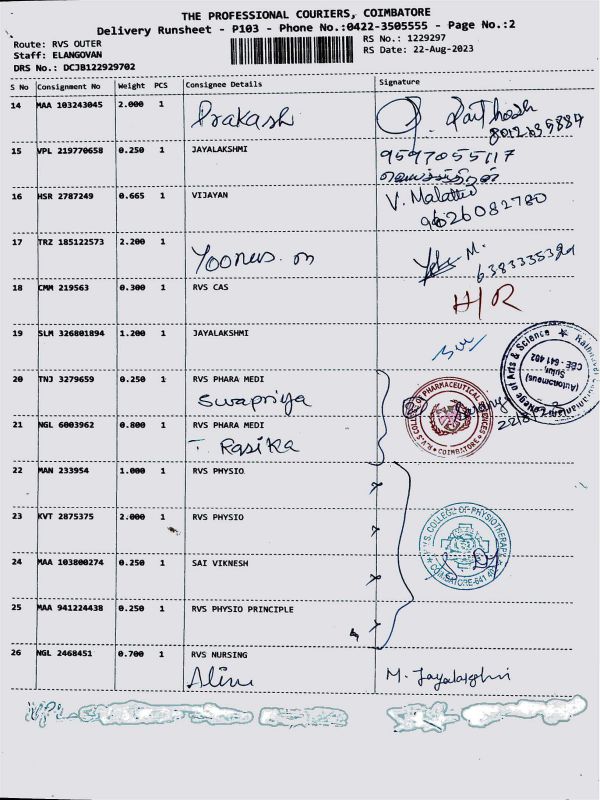 THE PROFESSIONAL COURIERS, COIMBATORE
Delivery Runsheet - P103 - Phone No.:0422-3505555 - Page No.:2
Route: RVS OUTER RS No.: 1229297
Staff: ELANGOVAN RS Date: 22-Aug-2023
DRS No.: DCJB122929702
S No Consignment No Weight PCS Consignee Details Signature
14 MAA 103243045 2.000 1 Prakash
8012635884
15 VPL 219770658 0.250 1 JAYALAKSHMI 9597055117
16 HSR 2787249 0.665 1 VIJAYAN V. Malathi
9626082780
17 TRZ 185122573 2.200 1 Yoonus. m M.
18 CMM 219563 0.300 1 RVS CAS H/R
19 SLM 326801894 1.200 1 JAYALAKSHMI
College of Arts & Science
(Autonomous)
Sulur,
CBE - 641 402
20 TNJ 3279659 0.250 1 RVS PHARA MEDI
Swapriya
R.V.S. COLLEGE OF PHARMACEUTICAL SCIENCES
COIMBATORE
21 NGL 6003962 0.800 1 RVS PHARA MEDI
T. Rasika
22 MAN 233954 1.000 1 RVS PHYSIO
23 KVT 2875375 2.000 1 RVS PHYSIO
R.V.S. COLLEGE OF PHYSIOTHERAPY
COIMBATORE-641 402
24 MAA 103800274 0.250 1 SAI VIKNESH
25 MAA 941224438 0.250 1 RVS PHYSIO PRINCIPLE
26 NGL 2468451 0.700 1 RVS NURSING
M. Jayalakshmi